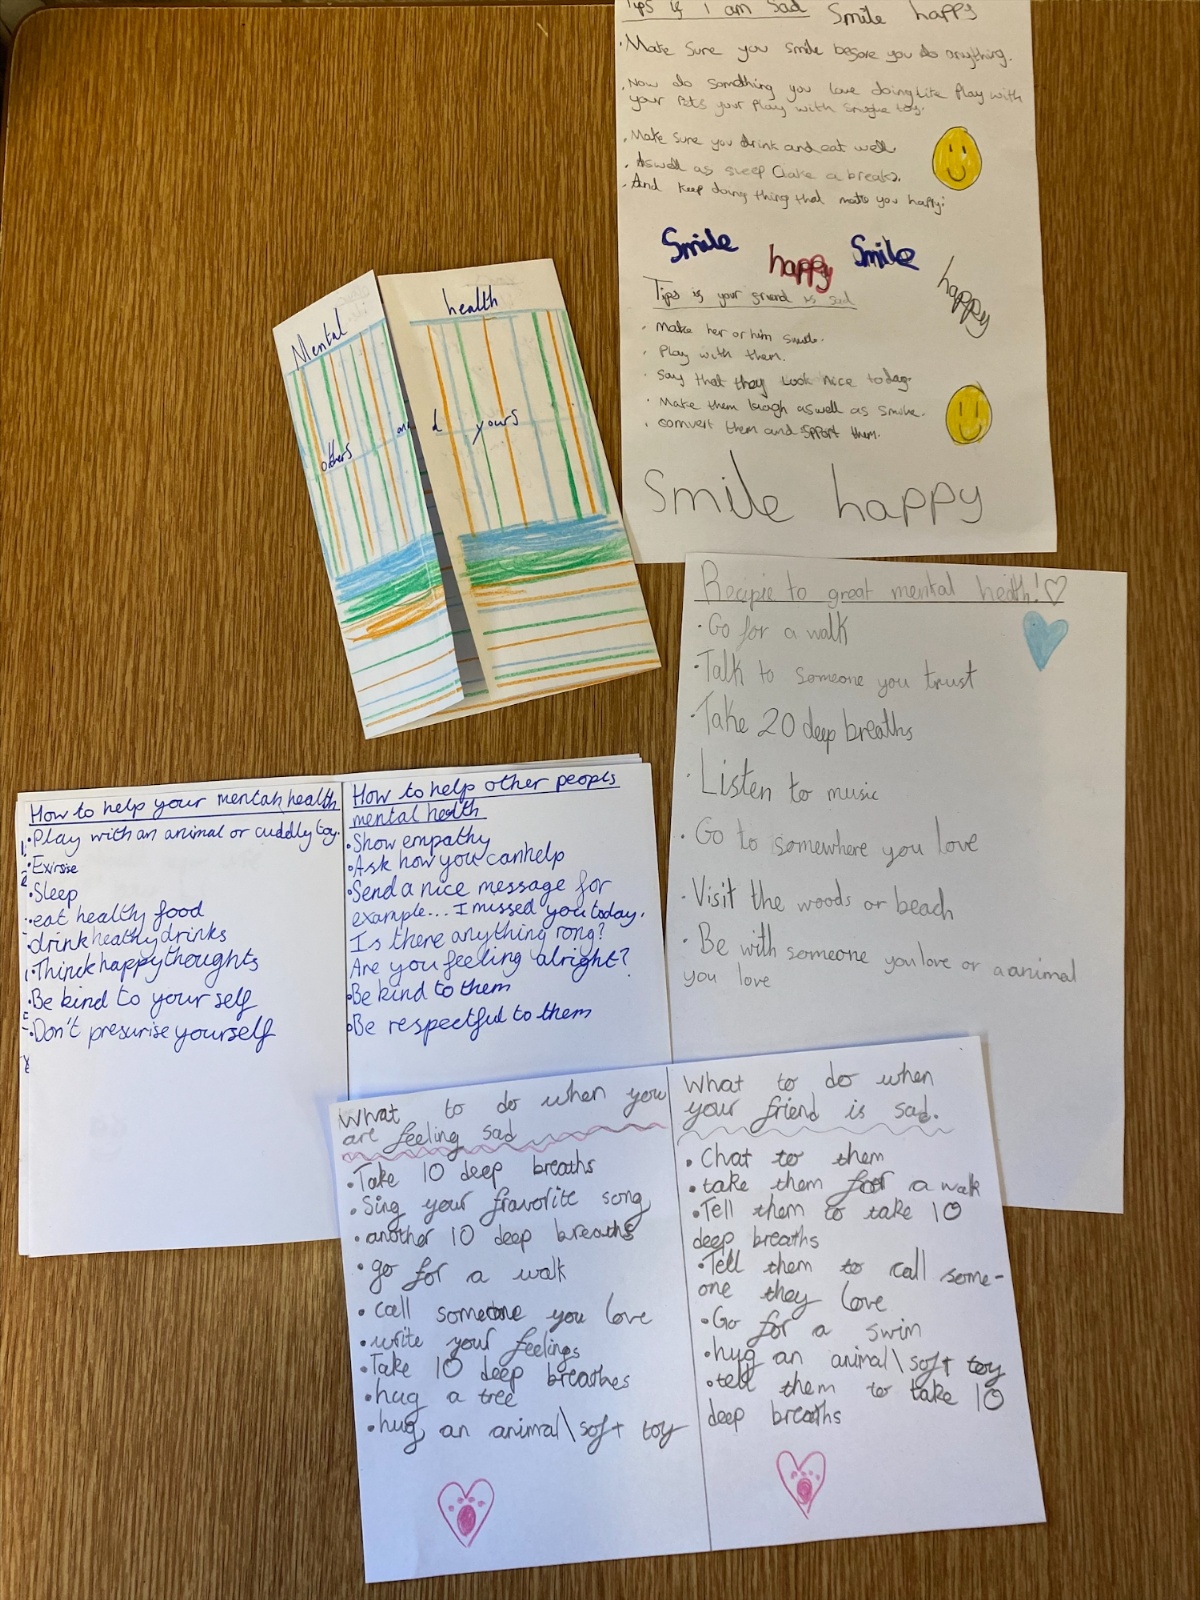 Tips if I am Sad Smile happy
• Make Sure you smile before you do anything.
• Now do something you love doing like Play with
your Pets your Play with
• Make sure you drink and eat well
• Aswell as sleep (take a break).
• And keep doing thing that make you happy.
Smile happy Smile happy
Tips if your friend is sad
• Make her or him smile.
• Play with them.
• Say that they look nice today.
• Make them laugh aswell as smile.
• comvert them and spport them.
Smile happy
Mental health
others and yours
Recipie to great mental health!
• Go for a walk
• Talk to someone you trust
• Take 20 deep breaths
• Listen to music
• Go to somewhere you love
• Visit the woods or beach
• Be with someone you love or a animal
you love
How to help your mentah health
• Play with an animal or cuddly toy.
• Exirsise
• Sleep
• eat healthy food
• drink heathy drinks
• Thinck happy thoughts
• Be kind to your self
• Don't presurise yourself
How to help other peopls
mental health
• Show empathy
• Ask how you can help
• Send a nice message for
example... I missed you today.
Is there anything rong?
Are you feeling alright?
• Be kind to them
• Be respectful to them
What to do when you
are feeling sad
• Take 10 deep breaths
• Sing your fravorite song
• another 10 deep breaths
• go for a walk
• call someone you love
• write your feelings
• Take 10 deep breathes
• hug a tree
• hug an animal\soft toy
What to do when
your friend is sad.
• Chat to them
• take them for a walk
• Tell them to take 10
deep breaths
• Tell them to call some-
one they love
• Go for a swim
• hug an animal\soft toy
• tell them to take 10
deep breaths